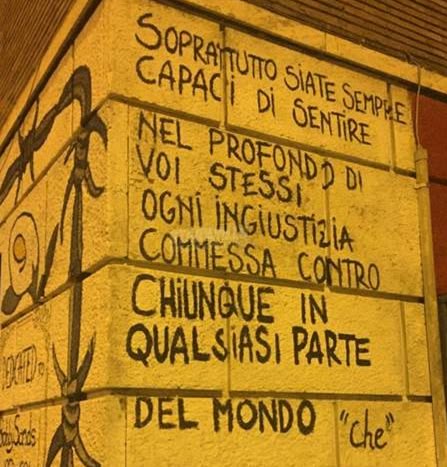 SOPRATTUTTO SIATE SEMPRE
CAPACI DI SENTIRE
NEL PROFONDO DI
VOI STESSI
OGNI INGIUSTIZIA
COMMESSA CONTRO
CHIUNQUE IN
QUALSIASI PARTE
DEL MONDO "Che"
DEDICATED TO
Bobby Sands